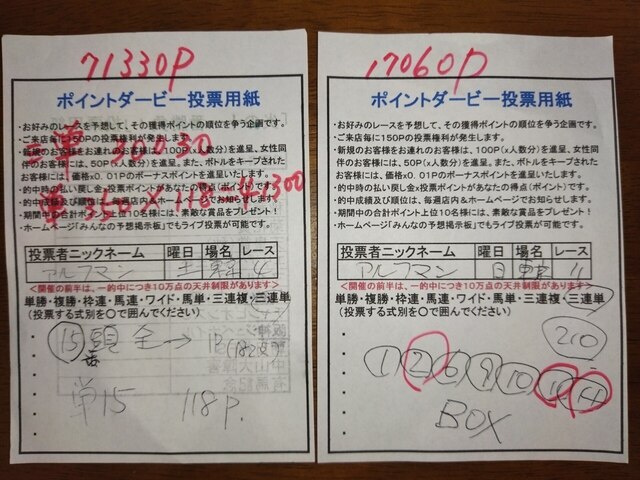 71330P
ポイントダービー投票用紙
・お好みのレースを予想して、その獲得ポイントの順位を争う企画です。
・ご来店毎に150Pの投票権利が発生します。
・新規のお客様をお連れのお客様は、100P(x人数分)を進呈、女性同
伴のお客様には、50P(x人数分)を進呈、また、ボトルをキープされた
お客様には、価格x0.01Pのボーナスポイントを進呈いたします。
・的中時の払い戻し金x投票ポイントがあなたの得点(ポイント)です。
・的中成績及び順位は、毎週店内&ホームページでお知らせします。
・期間中の合計ポイント上位10名様には、素敵な賞品をプレゼント!
・ホームページ「みんなの予想掲示板」でもライブ投票が可能です。
投票者ニックネーム 曜日 場名 レース
アルフマン 土 4
<開催の前半は、一的中につき10万点の天井制限があります>
単勝・複勝・枠連・馬連・ワイド・馬単・三連複・三連単
(投票する式別を〇で囲んでください)
15頭 全→
単15 118P.
17060P
ポイントダービー投票用紙
・お好みのレースを予想して、その獲得ポイントの順位を争う企画です。
・ご来店毎に150Pの投票権利が発生します。
・新規のお客様をお連れのお客様は、100P(x人数分)を進呈、女性同
伴のお客様には、50P(x人数分)を進呈、また、ボトルをキープされた
お客様には、価格x0.01Pのボーナスポイントを進呈いたします。
・的中時の払い戻し金x投票ポイントがあなたの得点(ポイント)です。
・的中成績及び順位は、毎週店内&ホームページでお知らせします。
・期間中の合計ポイント上位10名様には、素敵な賞品をプレゼント!
・ホームページ「みんなの予想掲示板」でもライブ投票が可能です。
投票者ニックネーム 曜日 場名 レース
アルフマン 日 11
<開催の前半は、一的中につき10万点の天井制限があります>
単勝・複勝・枠連・馬連・ワイド・馬単・三連複・三連単
(投票する式別を〇で囲んでください)
210
1 2 6 9 10 11 14
BOX